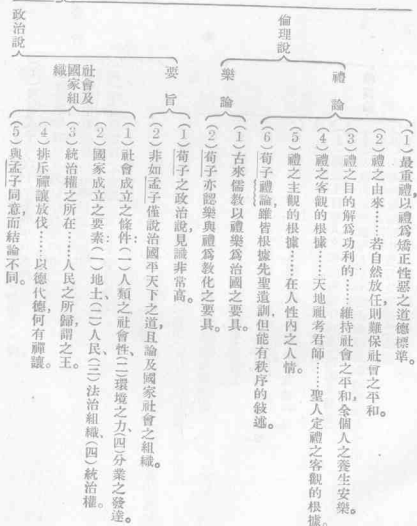 倫理說
禮論
(1)最重禮以禮爲矯正性惡之道德標準。
(2)禮之由來……若自然放任則難保社會之平和。
(3)禮之目的解爲功利的……維持社會之平和,全個人之養生安樂。
(4)禮之客觀的根據……天地祖考君師……聖人定禮之客觀的根據。
(5)禮之主觀的根據……在人性內之人情。
(6)荀子禮論,雖皆根據先聖遺訓,但能有秩序的敍述。
樂論
(1)古來儒教以禮樂爲治國之要具。
(2)荀子亦認樂與禮爲教化之要具。
政治說
要旨
(1)荀子之政治說,見識非常高。
(2)非如孟子僅說治國平天下之道,且論及國家社會之組織。
社會及國家組織
(1)社會成立之條件:(一)人類之社會性、(二)環境之力、(四)分業之發達。
(2)國家成立之要素:(一)地土、(二)人民、(三)法治組織、(四)統治權。
(3)統治權之所在……人民之所歸謂之王。
(4)排斥禪讓放伐……以德代德,何有禪讓。
(5)與孟子同意,而結論不同。